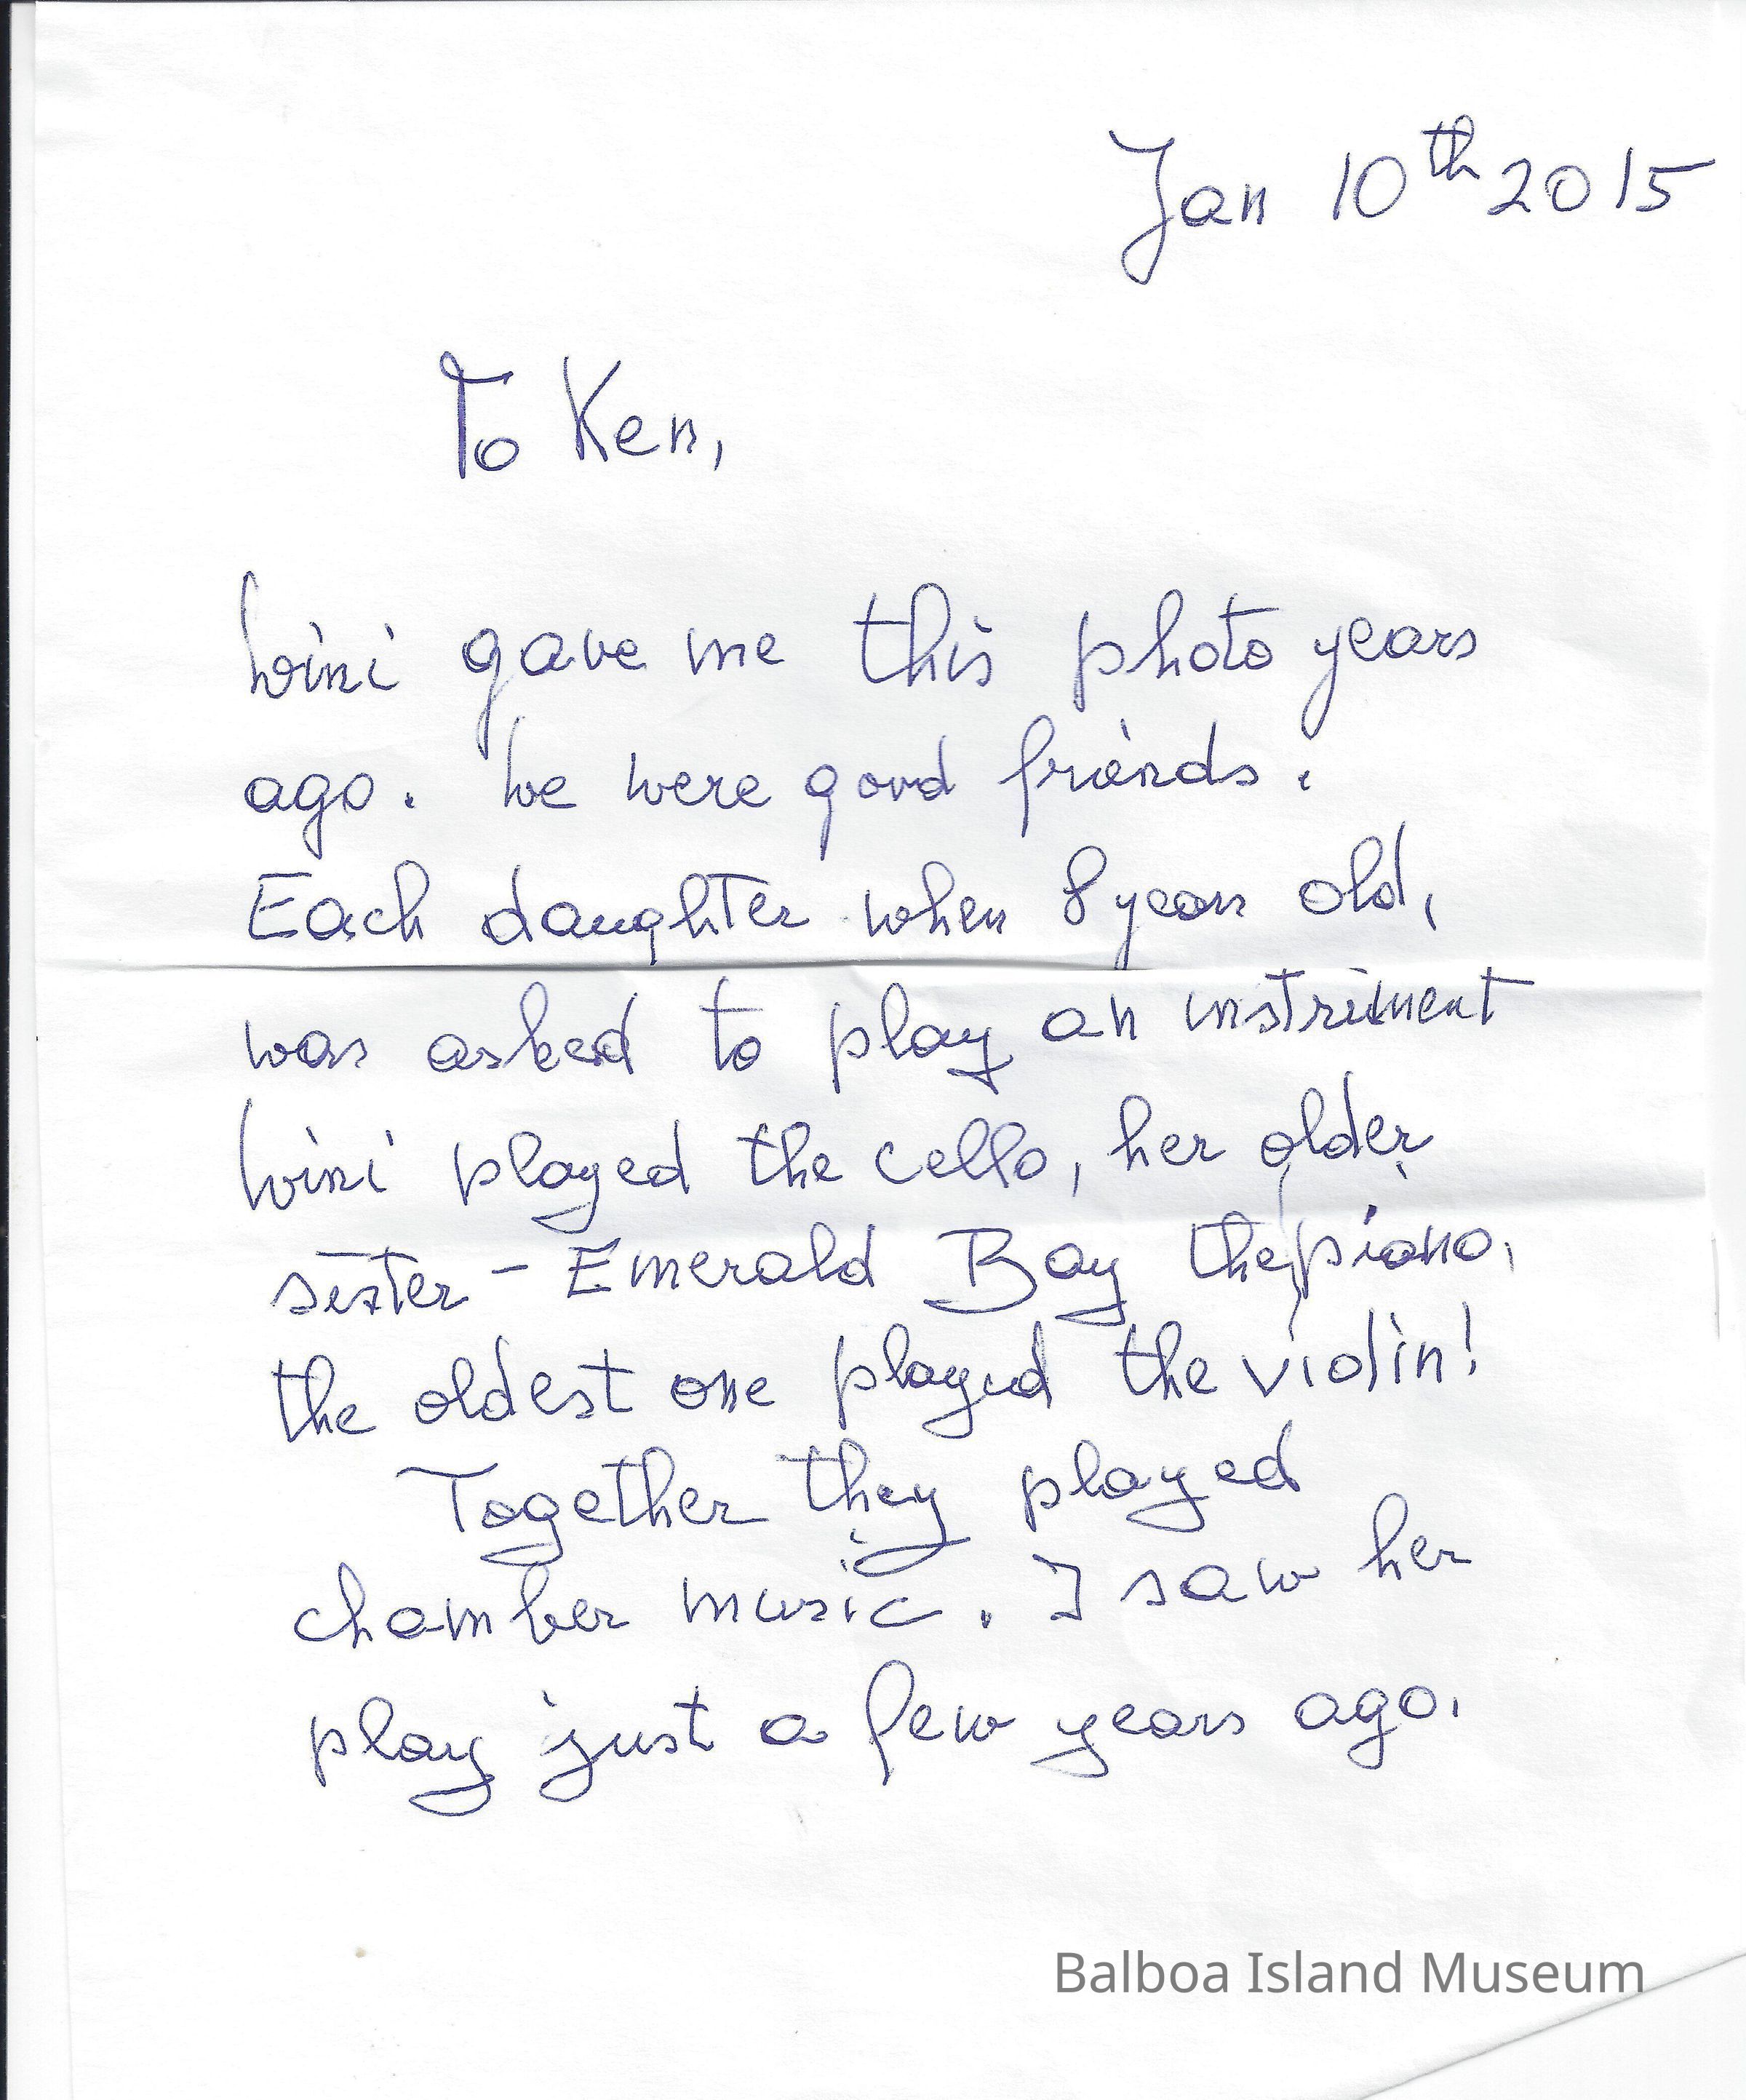 Jan 10th 2015
To Ken,
Wini gave me this photo years
ago. We were good friends.
Each daughter when 8 years old,
was asked to play an instrument
Wini played the cello, her older
sister - Emerald Bay the piano,
the oldest one played the violin!
Together they played
chamber music. I saw her
play just a few years ago.
Balboa Island Museum